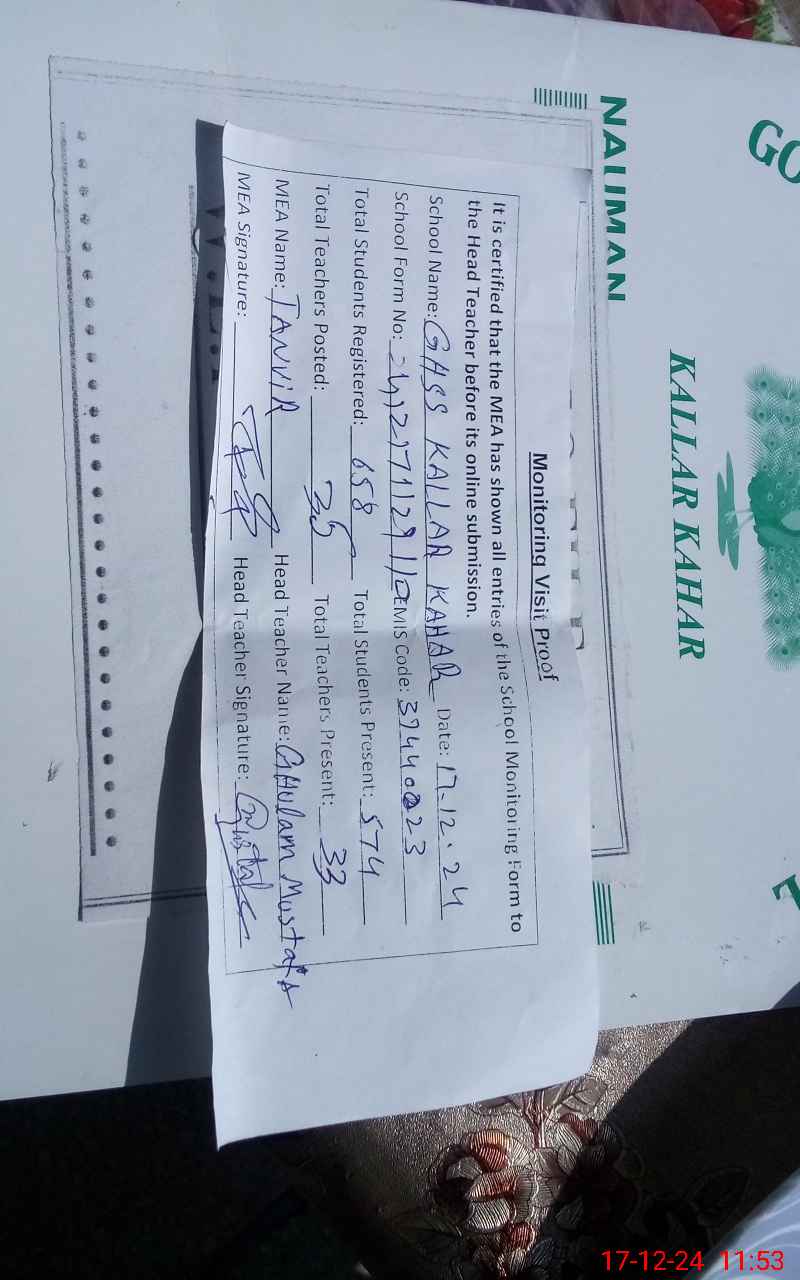 GO
NAUMAN
KALLAR KAHAR
Monitoring Visit Proof
It is certified that the MEA has shown all entries of the School Monitoring Form to
the Head Teacher before its online submission.
School Name: GHSS KALLAR KAHAR Date: 17.12.24
School Form No: EMIS Code: 37440023
Total Students Registered: 658 Total Students Present: 574
Total Teachers Posted: 35 Total Teachers Present: 33
MEA Name: TANVIR Head Teacher Name: GHulam MustafA
MEA Signature: Head Teacher Signature:
17-12-24 11:53